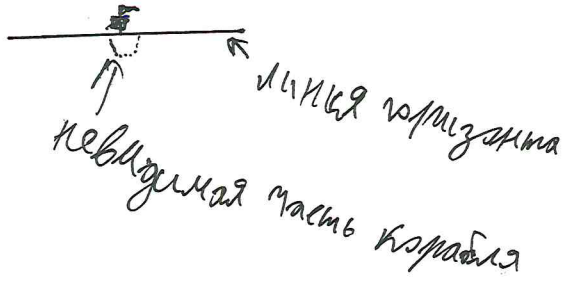 линия горизонта
невидимая часть корабля